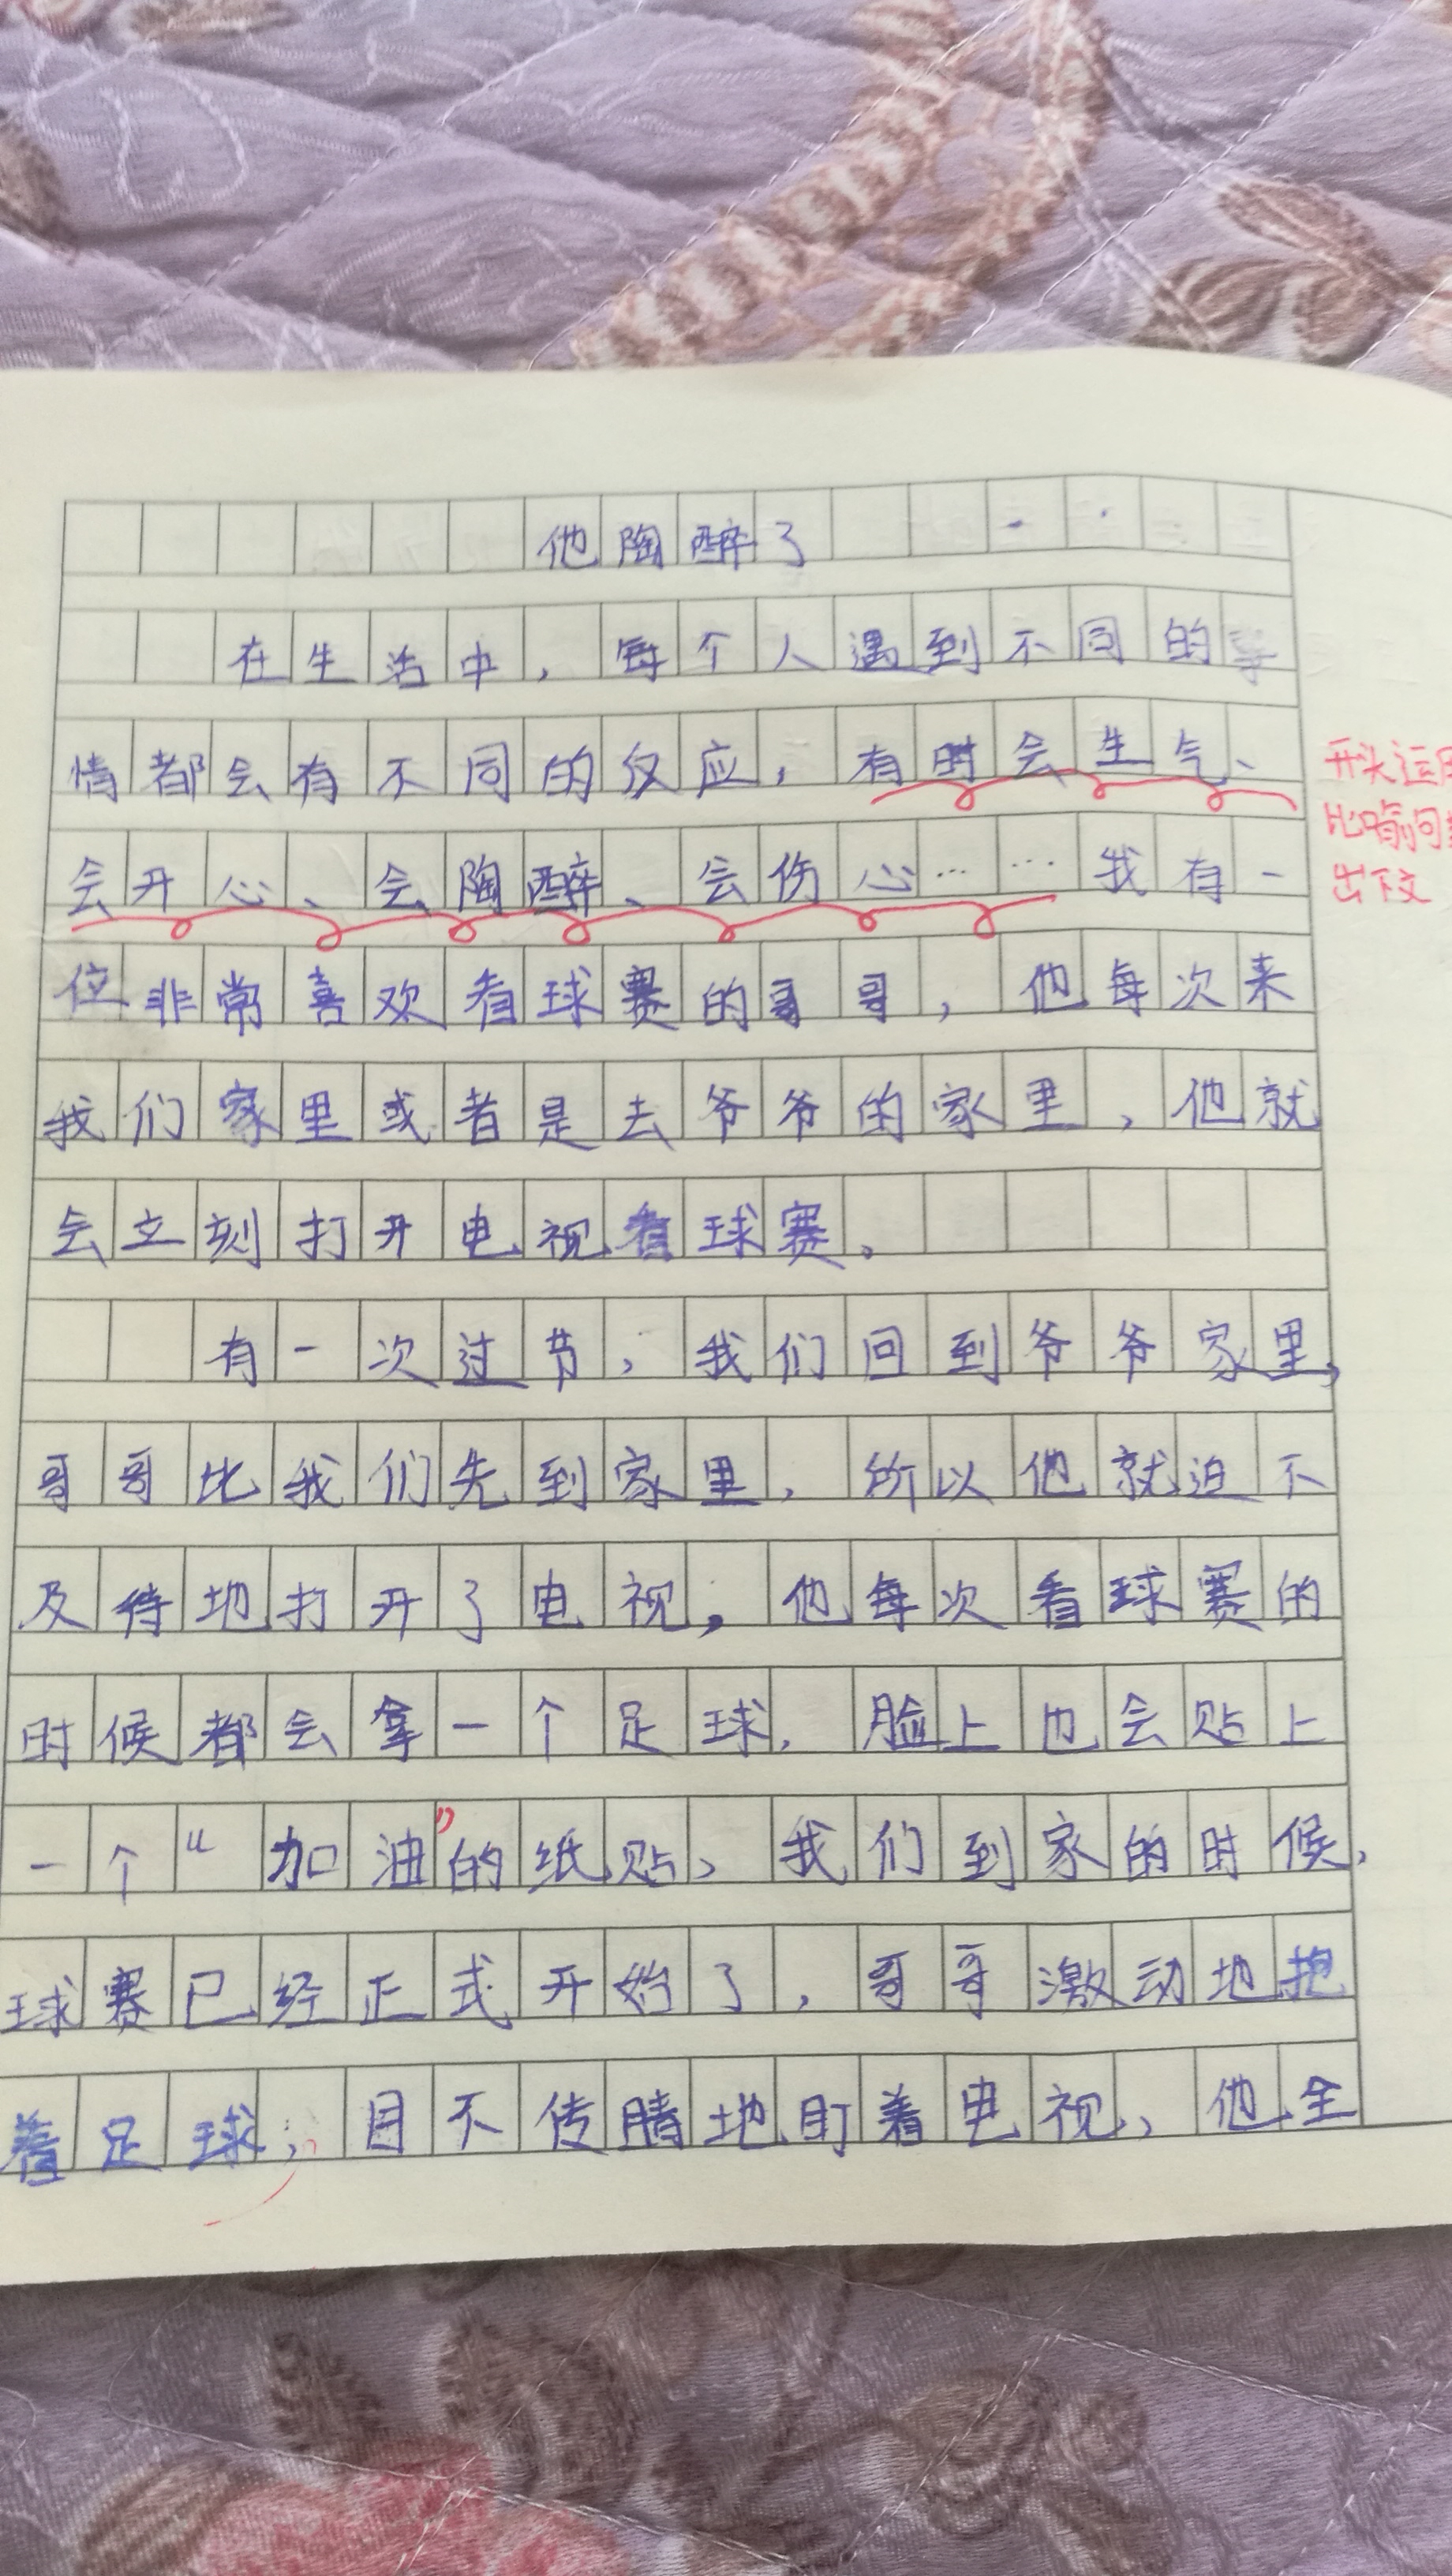 他陶醉了
在生活中，每个人遇到不同的事
情都会有不同的反应，有时会生气、
会开心、会陶醉、会伤心……我有一
位非常喜欢看球赛的哥哥，他每次来
我们家里或者是去爷爷的家里，他就
会立刻打开电视看球赛。
有一次过节，我们回到爷爷家里，
哥哥比我们先到家里，所以他就迫不
及待地打开了电视，他每次看球赛的
时候都会拿一个足球，脸上也会贴上
一个“加油”的纸贴，我们到家的时候，
球赛已经正式开始了，哥哥激动地抱
着足球，目不传睛地盯着电视，他全
开头运用
比喻句
出下文